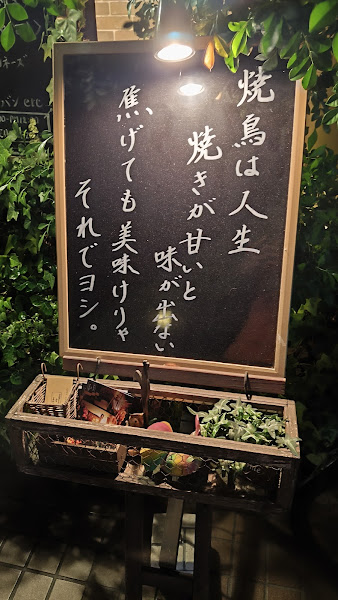 焼鳥は人生
焼きが甘いと
味が出ない
焦げても美味けりゃ
それでヨシ。